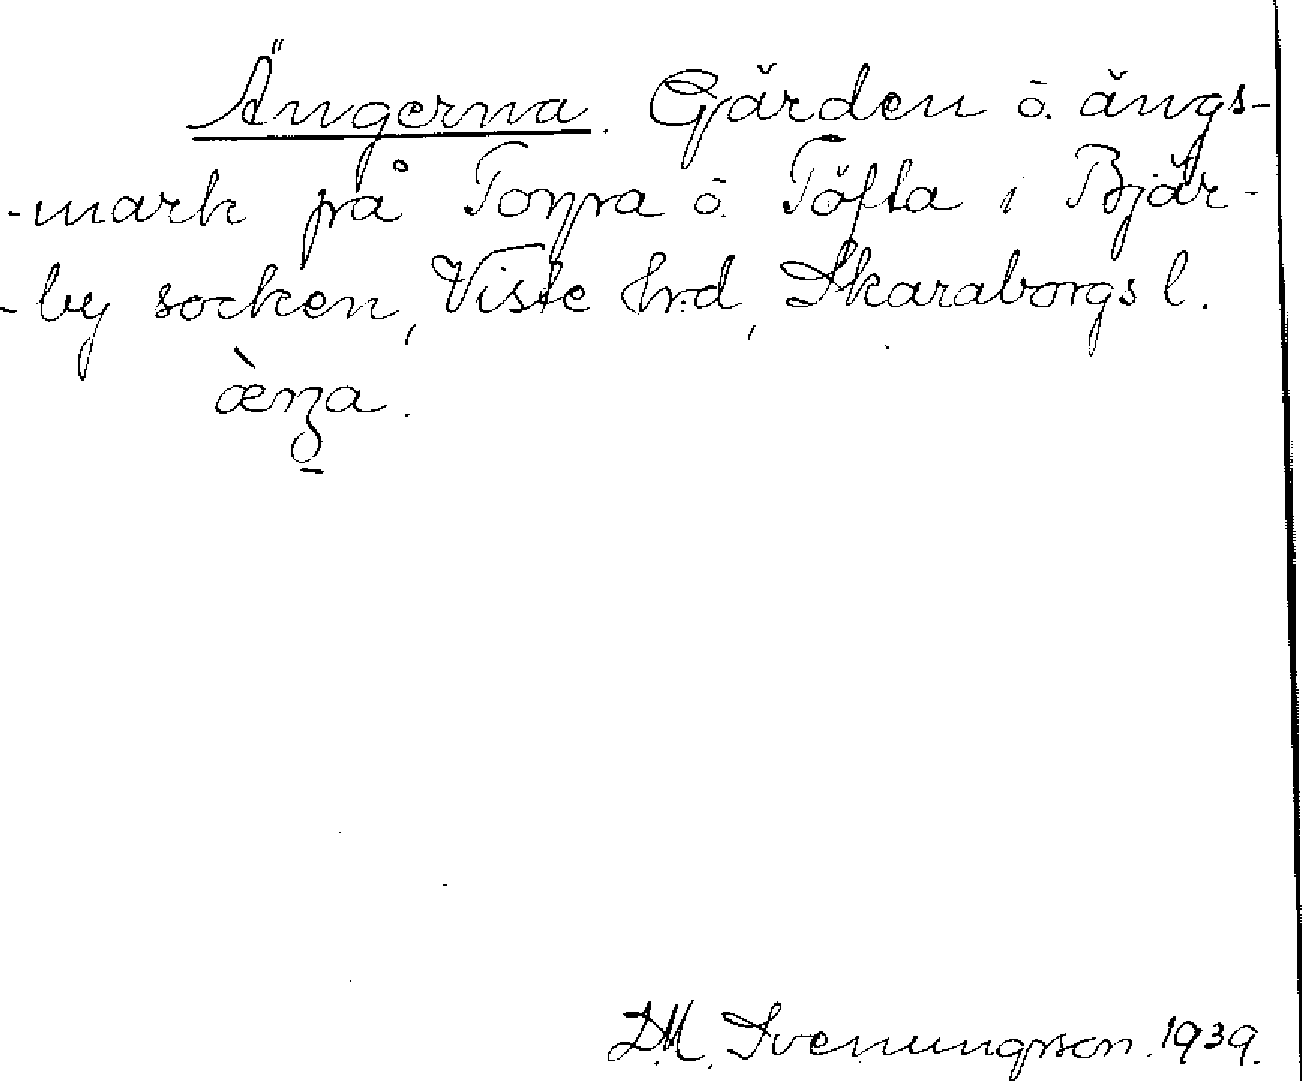 Ängerna. Gärden o. ängs-
-mark på Torpa o. Töfta i Bjär-
-by socken, Viste hrd, Skaraborgs l.
D.M. Svenungsson. 1939.